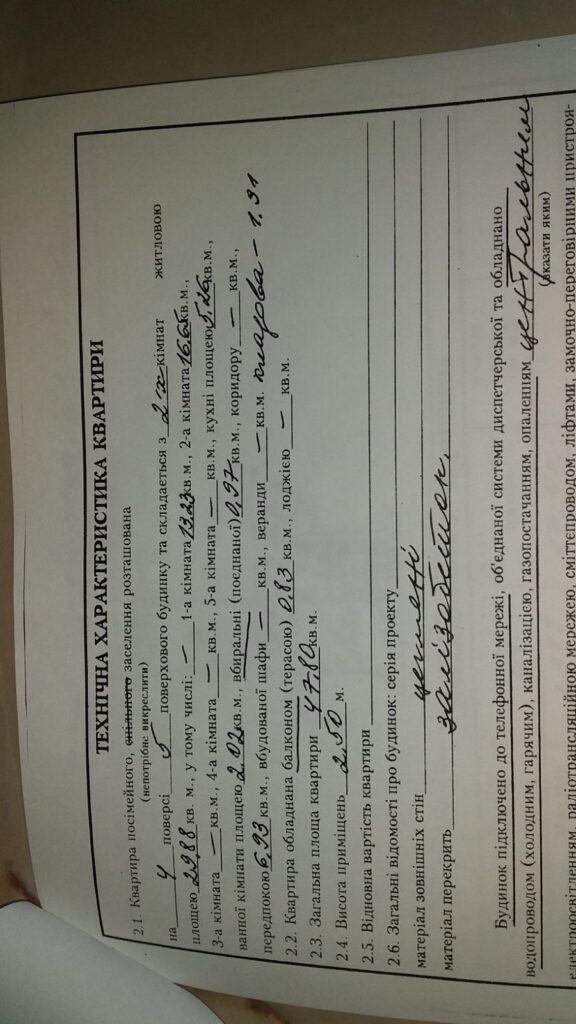 ТЕХНІЧНА ХАРАКТЕРИСТИКА КВАРТИРИ
2.1. Квартира посімейного, спільного заселення розташована
(непотрібне викреслити)
на 4 поверсі 5 поверхового будинку та складається з 2-х кімнат житловою
площею 29,88 кв. м., у тому числі: — 1-а кімната 13,23 кв.м., 2-а кімната 16,65 кв.м.,
3-а кімната — кв.м., 4-а кімната — кв.м., 5-а кімната — кв.м., кухні площею 5,26 кв.м.,
ванної кімнати площею 2,02 кв.м., вбиральні (поєднаної) 0,97 кв.м., коридору — кв.м.,
передпокою 6,93 кв.м., вбудованої шафи — кв.м., веранди — кв.м. — 1.91
2.2. Квартира обладнана балконом (терасою) 0,83 кв.м., лоджією — кв.м.
2.3. Загальна площа квартири 47.80 кв.м.
2.4. Висота приміщень 2,50 м.
2.5. Відновна вартість квартири
2.6. Загальні відомості про будинок: серія проекту
матеріал зовнішніх стін цегляні
матеріал перекрить залізобетон.
Будинок підключено до телефонної мережі, об'єднаної системи диспетчерської та обладнано
водопроводом (холодним, гарячим), каналізацією, газопостачанням, опаленням центральним
(вказати яким)
електроосвітленням, радіотрансляційною мережею, сміттєпроводом, ліфтами, замочно-переговорними пристроя-